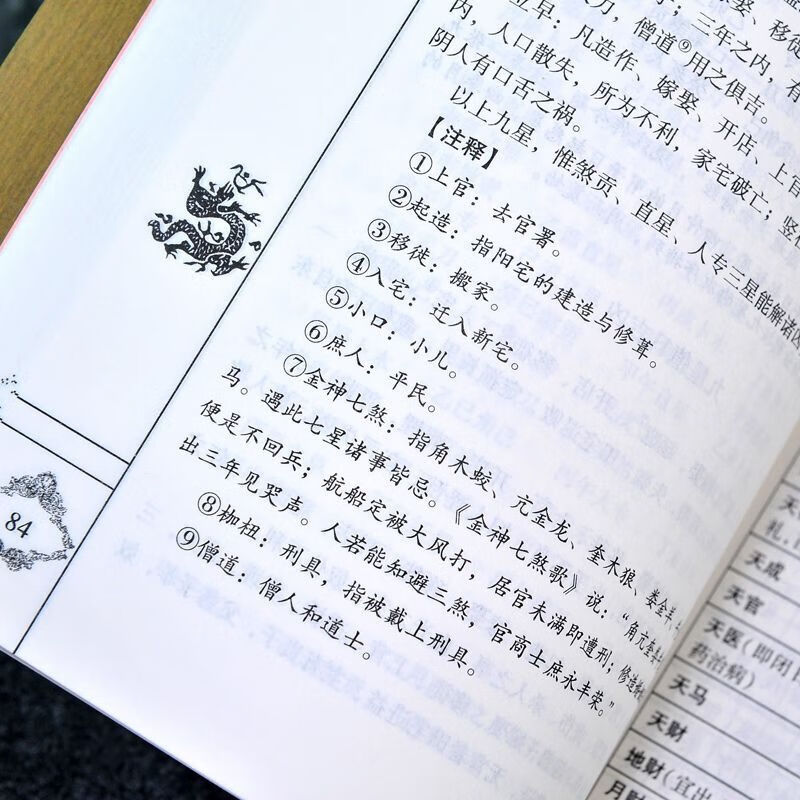 嫁娶、移徙
刀,僧道⑨用之俱吉。
立早:凡造作、嫁娶、开店、上官
内,人口散失,所为不利,家宅破亡;竖
阴人有口舌之祸。
以上九星,惟煞贡、直星、人专三星能解诸凶
【注释】
①上官:去官署。
②起造:指阳宅的建造与修葺。
③移徙:搬家。
④入宅:迁入新宅。
⑤小口:小儿。
⑥庶人:平民。
⑦金神七煞:指角木蛟、亢金龙、奎木狼、娄金羊、
马。遇此七星诸事皆忌。《金神七煞歌》说:“角亢奎娄
便是不回兵;航船定被大风打,居官未满即遭刑;修造
出三年见哭声。人若能知避三煞,官商士庶永丰荣。”
⑧枷杻:刑具,指被戴上刑具。
⑨僧道:僧人和道士。
84
礼,
天成
天官
天医(即闭日
药治病)
天马
天财
地财(宜出
月财